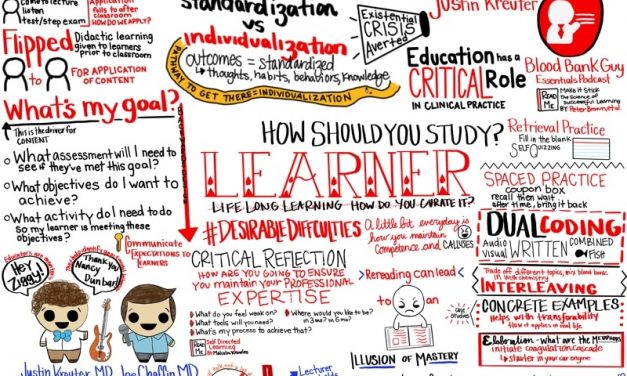 Come to lecture
listen
test/step exam
Application
falls to after
classroom
HOW DO WE APPLY?
Flipped
Didactic learning
given to learners
prior to
classroom
FOR APPLICATION
OF CONTENT
standardization
vs
individualization
outcomes = standardized
thoughts, habits, behaviors, knowledge
PATHWAY TO GET THERE = INDIVIDUALIZATION
Existential
CRISIS
Averted
Justin Kreuter
Education has a
CRITICAL Role
IN CLINICAL PRACTICE
Blood Bank Guy
Essentials Podcast
READ
ME
Make it Stick
The science of
successful Learning
By Peter Brown, et al
What's my goal?
This is the driver for
CONTENT
What assessment will I need to
see if they've met this goal?
What objectives do I want to
achieve?
What activity do I need to do
so my learner is meeting these
objectives?
Communicate
EXPECTATIONS TO LEARNERS
HOW SHOULD YOU STUDY?
LEARNER
LIFE LONG LEARNING HOW DO YOU CURATE IT?
#DESIRABLE DIFFICULTIES
A little bit everyday is
how you maintain
Competence and CALLUSES
CRITICAL REFLECTION
HOW ARE YOU GOING TO ENSURE
YOU MAINTAIN YOUR PROFESSIONAL
EXPERTISE
What do you feel weak on?
What tools will you need?
What's my process to achieve that?
Where would you like to be?
in 3 mo? in 6 mo?
READ
ME
Self Directed
Learning
By Malcolm Knowles
Rereading can lead
to an
ILLUSION OF MASTERY
Retrieval Practice
Fill in the blank
SELF QUIZZING
SPACED PRACTICE
coupon box
recall then wait..
after time, bring it back
DUAL CODING
Audio
visual
WRITTEN
COMBINED
FISH
Trade off different topics, mix blood bank
in with chemistry
INTERLEAVING
CONCRETE EXAMPLES
Helps with transferability
how it applies in real life
Elaboration - what are the
initiate coagulation cascade
starter in your car engine
HEY
ZIGGY!
Thank you
Nancy
Dunbar!
Justin Kreuter MD
Joe Chaffin MD
Lecturer